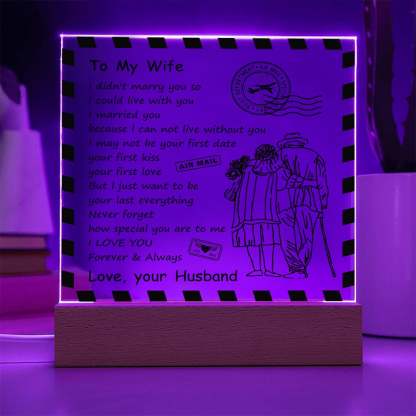 To My Wife
I didn't marry you so
I could live with you
I married you
because I can not live without you
I may not be your first date
your first kiss
your first love
But I just want to be
your last everything
Never forget
how special you are to me
I LOVE YOU
Forever & Always
Love, your Husband
AIR MAIL